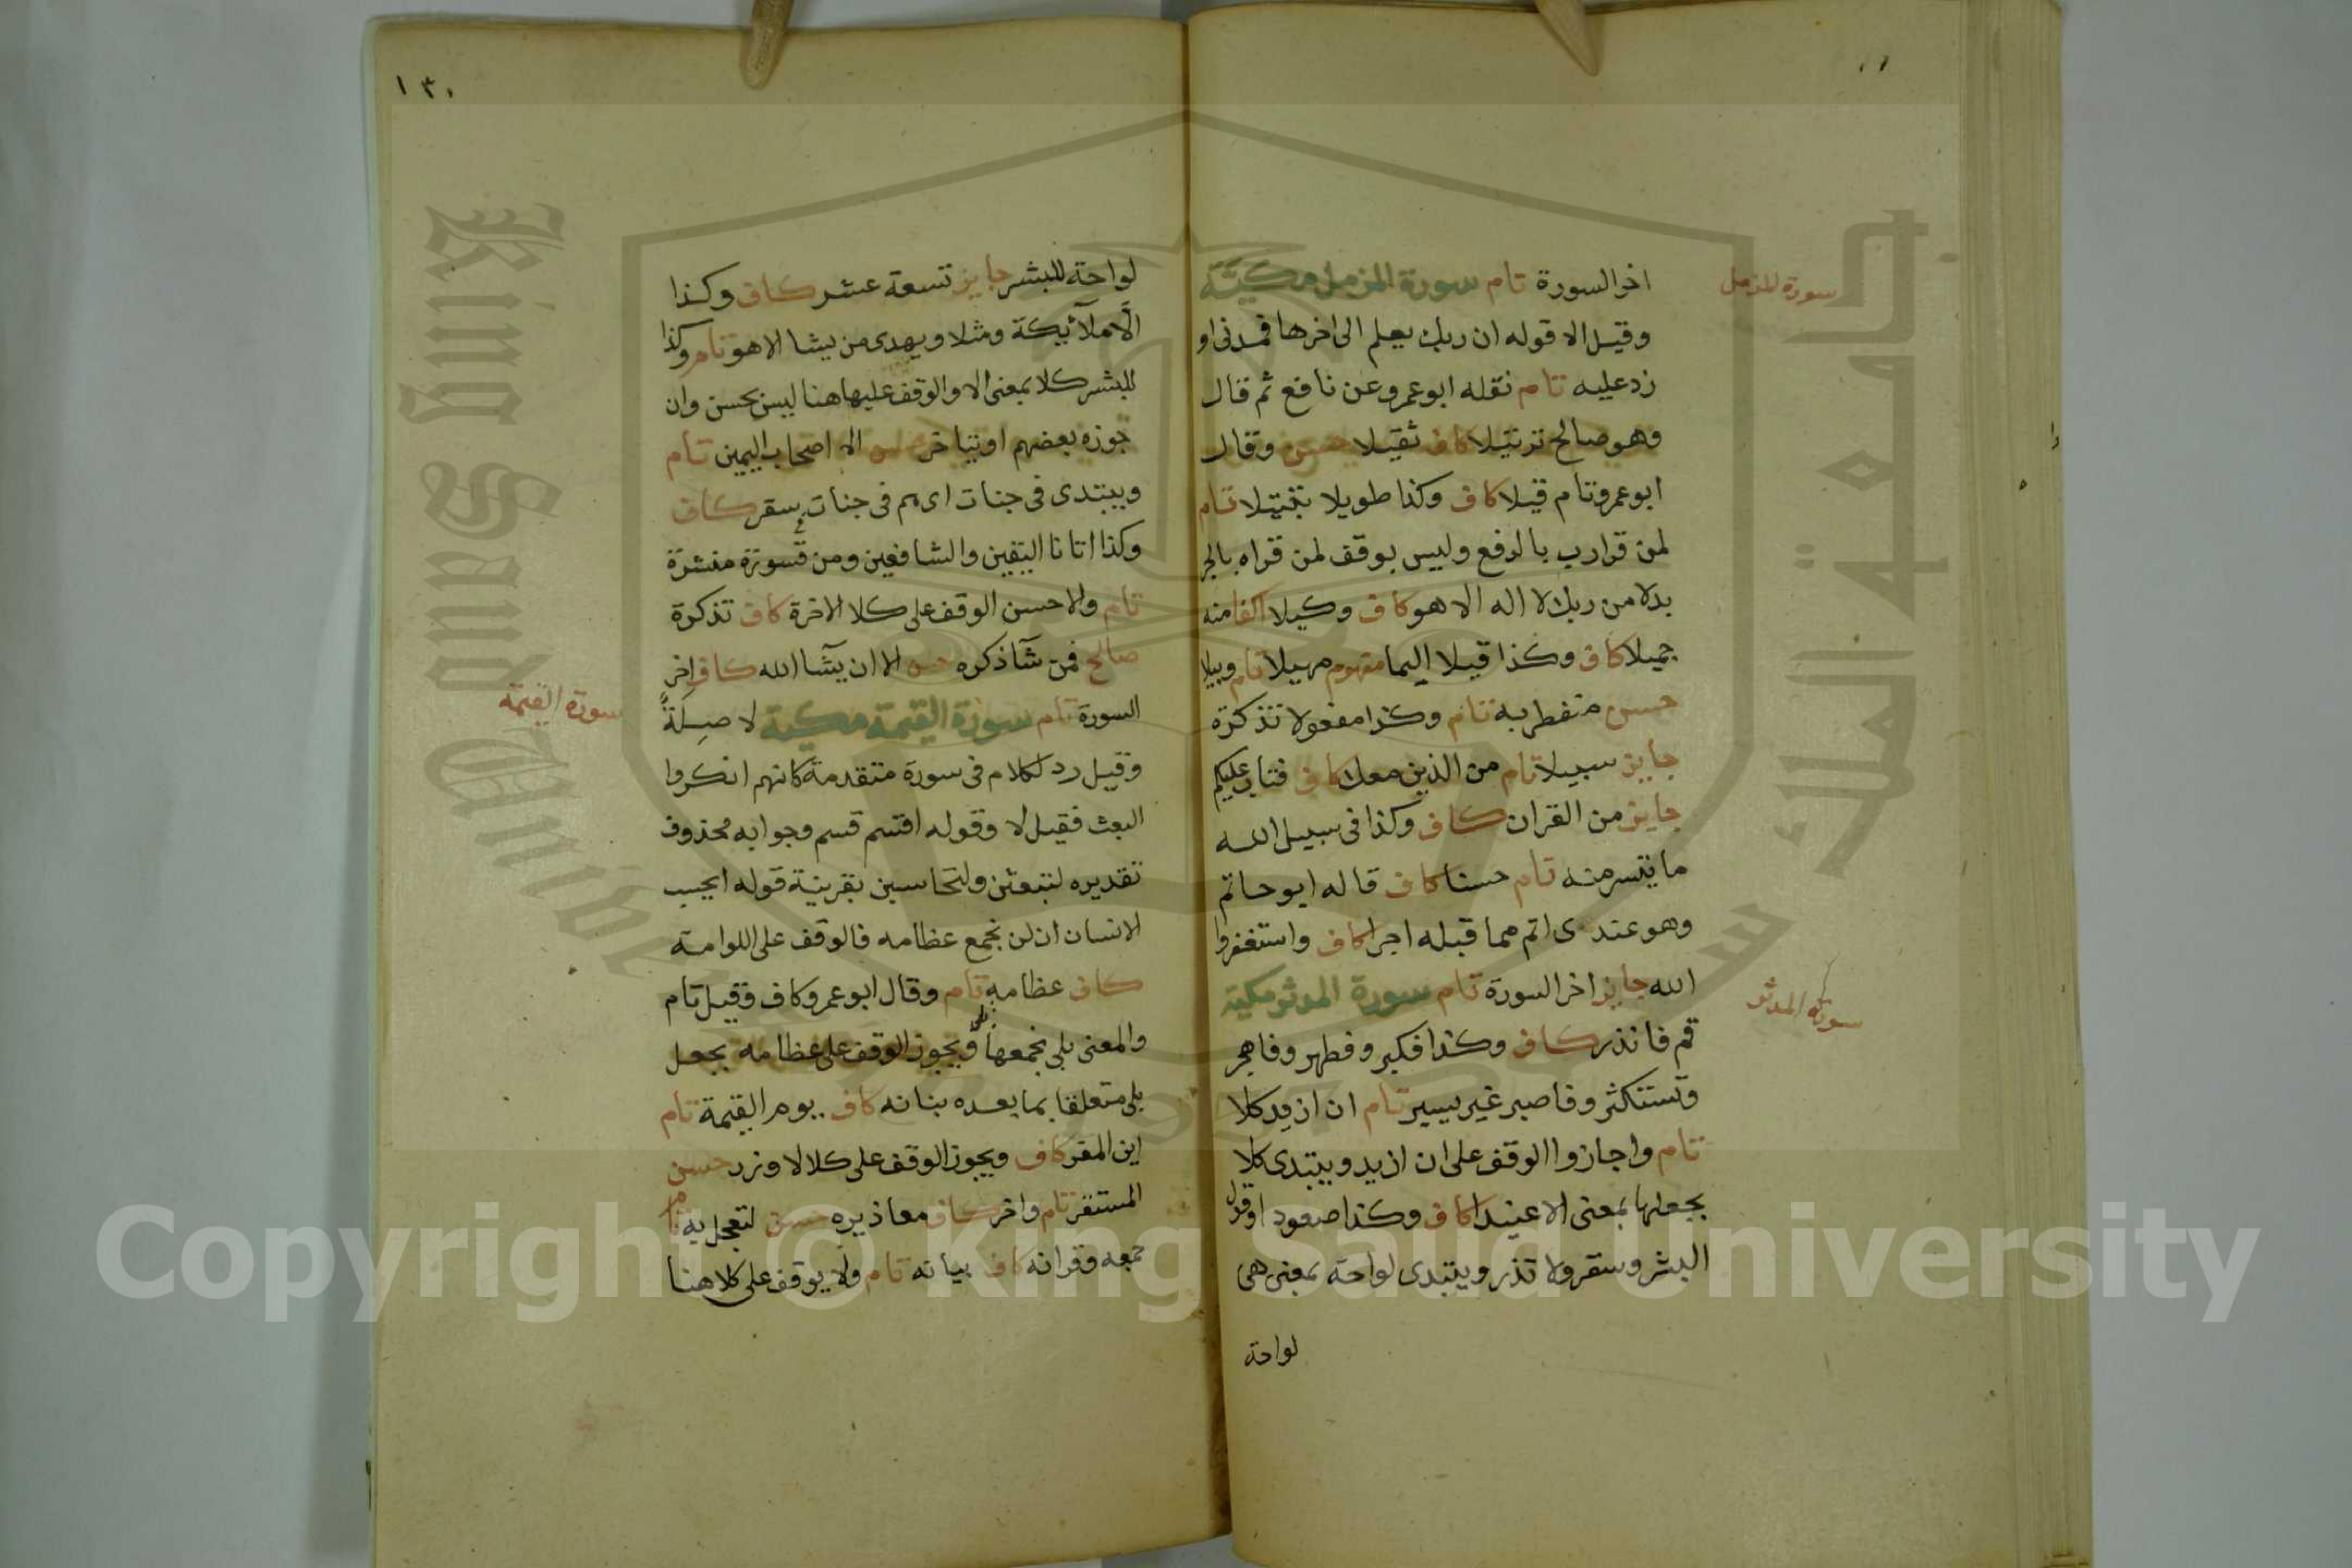 سورة المزمل
اخر السورة تام سورة المزمل مكية
وقيل الا قوله ان ربك يعلم الى اخرها فمدنى او
زد عليه تام نقله ابو عمرو عن نافع ثم قال
وهو صالح ترتيلا كاف ثقيلا حسن وقال
ابو عمرو تام قيلا كاف وكذا طويلا تبتيلا تام
لمن قرا رب بالرفع وليس بوقف لمن قراه بالجر
بدلا من ربك لا اله الا هو كاف وكيلا اكفا منه
جميلا كاف وكذا قليلا اليما مفهوم مهيلا تام وبيلا
حسن منفطر به تام وكذا مفعولا تذكرة
جايز سبيلا تام من الذين معك كاف فتاب عليكم
جايز من القران كاف وكذا فى سبيل الله
ما تيسر منه تام حسنا كاف قاله ابو حاتم
وهو عندى اتم مما قبله اجرا كاف واستغفروا
الله جايز اخر السورة تام سورة المدثر مكية
سورة المدثر
قم فانذر كاف وكذا فكبر وفطهر وفاهجر
وتستكثر وفاصبر غير يسير تام ان ازيد كلا
تام واجازوا الوقف على ان ازيد ويبتدى كلا
بجعلها بمعنى الا عنيدا كاف وكذا صعودا وقول
البشر وسقر ولا تذر ويبتدى لواحة بمعنى هى
لواحة
١٣٠
لواحة للبشر جايز تسعة عشر كاف وكذا
الا ملائكة ومثلا ويهدى من يشا الا هو تام وكذا
للبشر كلا بمعنى الا والوقف عليها هنا ليس بحسن وان
جوزه بعضهم او يتاخر حسن الا اصحاب اليمين تام
ويبتدى فى جنات اى هم فى جنات سقر كاف
وكذا اتانا اليقين والشافعين ومن قسورة منشرة
تام والاحسن الوقف على كلا الاخرة كاف تذكرة
صالح فمن شا ذكره حسن الا ان يشا الله كاف اخر
السورة تام سورة القيمة مكية لا صلة
سورة القيمة
وقيل رد لكلام فى سورة متقدمة كانهم انكروا
البعث فقيل لا وقوله اقسم قسم وجوابه محذوف
تقديره لتبعثن ولتحاسبن بقرينة قوله ايحسب
الانسان ان لن نجمع عظامه فالوقف على اللوامة
كاف عظامه تام وقال ابو عمرو كاف وقيل تام
والمعنى بلى نجمعها ويجوز الوقف على عظامه بجعل
بلى متعلقا بما بعده بنانه كاف يوم القيمة تام
اين المفر كاف ويجوز الوقف على كلا لا وزر حسن
المستقر تام واخر كاف معاذيره حسن لتعجل به تام
جمعه وقرانه كاف بيانه تام ولا يوقف على كلا هنا
Copyright © King Saud University